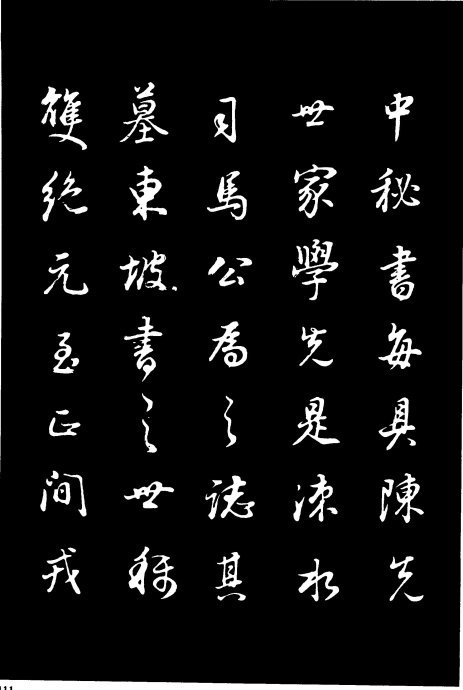 中秘書每具陳先
世家學先是涑水
司馬公爲之誌其
墓東坡書之世稱
雙絶元至正間戎
111